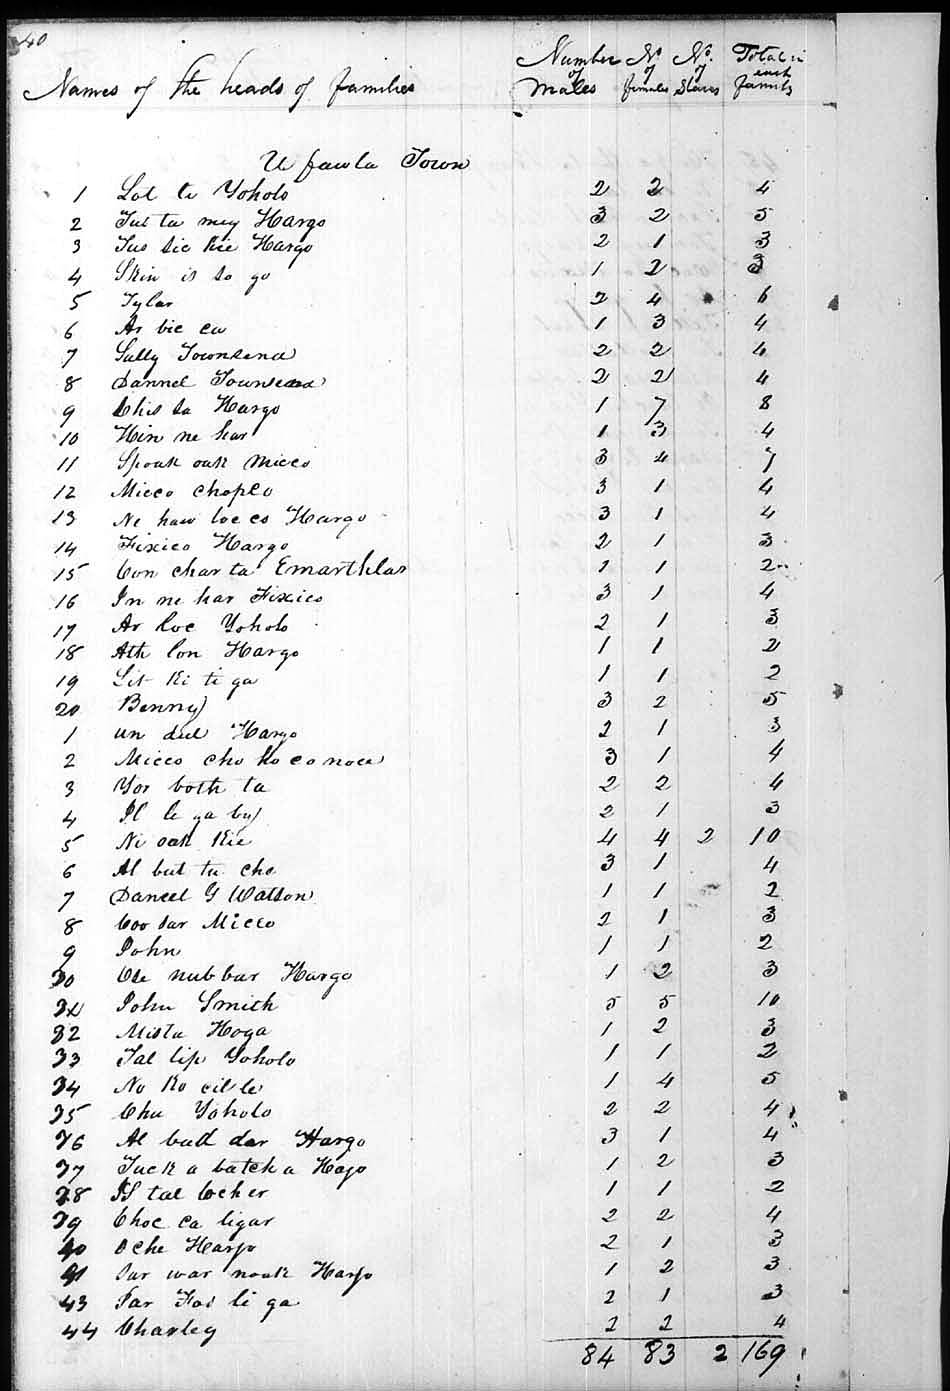 40
Names of the heads of families Number of Males No of females No. of Slaves Total in each family
U faula Town
1 Lot te Yoholo 2 2 4
2 Tut ta mey Hargo 3 2 5
3 Tus sic kie Hargo 2 1 3
4 Skin is sa go 1 2 3
5 Tylar 2 4 6
6 Ar bic ca 1 3 4
7 Sally Townsend 2 2 4
8 Dannel Townsend 2 2 4
9 Chis sa Hargo 1 7 8
10 Hin ne har 1 3 4
11 Spoak oak Micco 3 4 7
12 Micco chopco 3 1 4
13 Ne haw loc co Hargo 3 1 4
14 Fixico Hargo 2 1 3
15 Con char ta Emarthlar 1 1 2
16 In ne har Fixico 3 1 4
17 Ar loc Yoholo 2 1 3
18 Ath lon Hargo 1 1 2
19 Sit ki ti ga 1 1 2
20 Benny 3 2 5
1 un dul Hargo 2 1 3
2 Micco cho ko co noca 3 1 4
3 Yor both ta 2 2 4
4 Il le ga by 2 1 3
5 Ne oak kie 4 4 2 10
6 Al but tu che 3 1 4
7 Daneel G Watson 1 1 2
8 Coo sar Micco 2 1 3
9 John 1 1 2
30 Ose nub bar Hargo 1 2 3
31 John Smith 5 5 10
32 Mista Hoga 1 2 3
33 Tal lip Yoholo 1 1 2
34 No ko cil le 1 4 5
35 Chu Yoholo 2 2 4
36 Al bud dar Hargo 3 1 4
37 Tuck a batch a Hajo 1 2 3
38 Is tal Cocher 1 1 2
39 Choc ca ligar 2 2 4
40 Oche Harjo 2 1 3
41 Sar war noak Harjo 1 2 3
43 Par Fos li ga 2 1 3
44 Charley 2 2 4
84 83 2 169